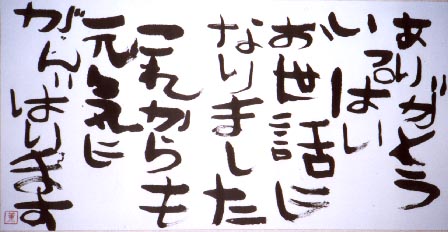 ありがとう
お世話に
なりました
これからも
元気に
がんばります